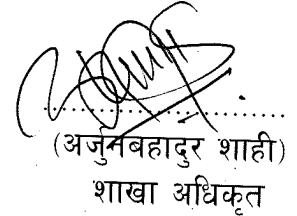 (अर्जुनबहादुर शाही)
शाखा अधिकृत